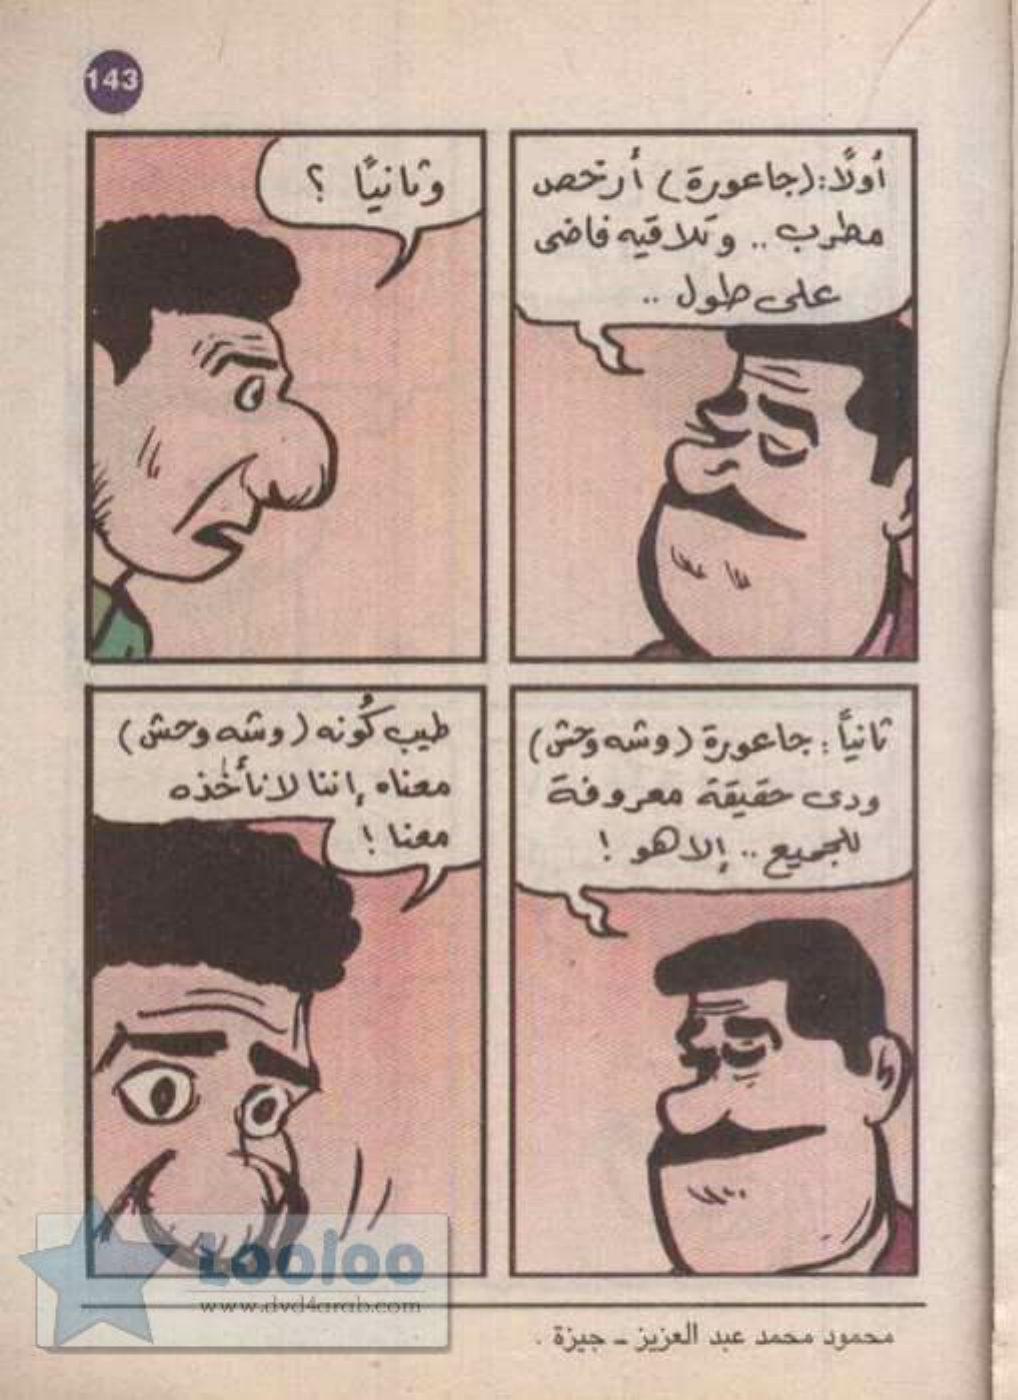 143
أولًا: (جاعورة) أرخص
مطرب .. وتلاقيه فاضى
على طول ..
وثانيًا ؟
ثانياً : جاعورة (وشه وحش)
ودى حقيقة معروفة
للجميع .. إلا هو !
طيب كُونه (وشه وحش)
معناه إننا لا نأخذه
معنا !
Looloo
www.dvd4arab.com
محمود محمد عبد العزيز - جيزة .